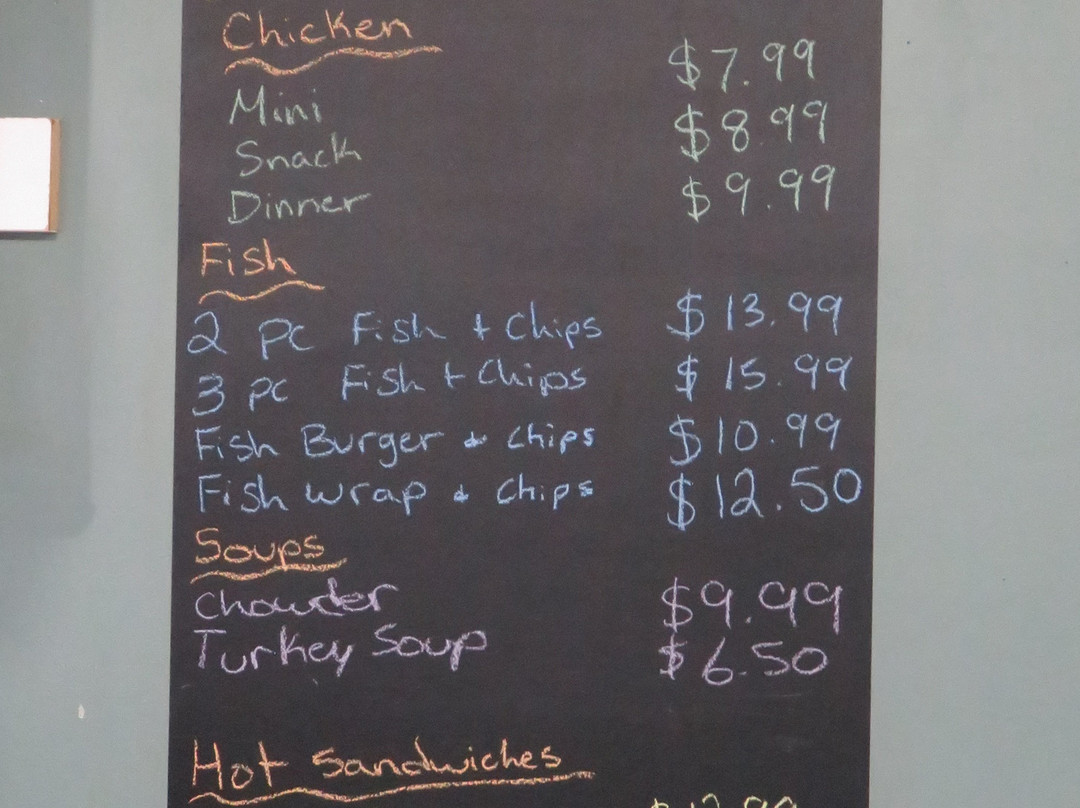 Chicken
Mini $7.99
Snack $8.99
Dinner $9.99
Fish
2 pc Fish + Chips $13.99
3 pc Fish + Chips $15.99
Fish Burger & Chips $10.99
Fish wrap & Chips $12.50
Soups
Chowder $9.99
Turkey Soup $6.50
Hot Sandwiches